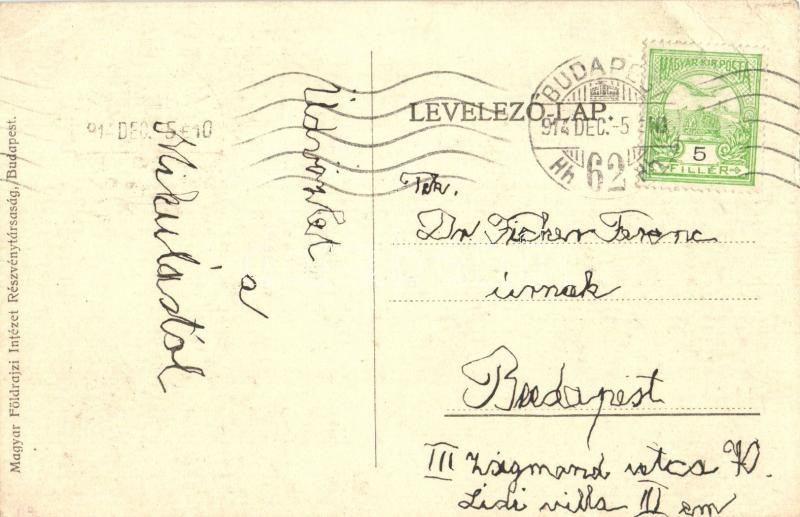 Magyar Földrajzi Intézet Részvénytársaság, Budapest.
914 DEC. -5 *10
Üdvözlet
a
Mikulástól
LEVELEZŐ-LAP.
BUDAPE
914 DEC. -5
62
MAGYAR KIR. POSTA
5
FILLÉR
Tek.
Dr Ficher Ferenc
úrnak
Budapest
III Zsigmond utca
Lidi villa II em